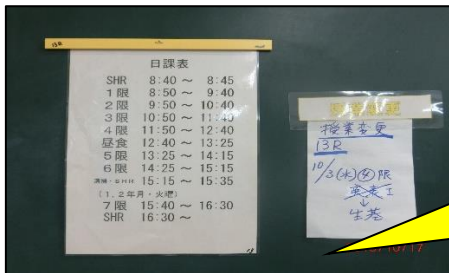 13R
日課表
SHR 8:40 ～ 8:45
1限 8:50 ～ 9:40
2限 9:50 ～ 10:40
3限 10:50 ～ 11:40
4限 11:50 ～ 12:40
昼食 12:40 ～ 13:25
5限 13:25 ～ 14:15
6限 14:25 ～ 15:15
清掃・SHR 15:15 ～ 15:35
(1,2年月・火曜)
7限 15:40 ～ 16:30
SHR 16:30 ～
授業変更
13R
10/3(水)④限
英表I
↓
生基